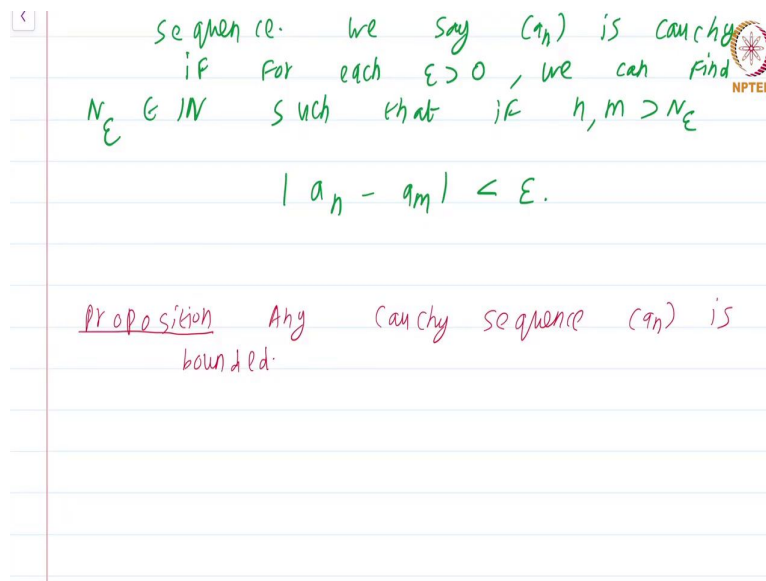 sequence. We say (aₙ) is cauchy
if for each ε > 0, we can find
NPTEL
N_ε ∈ ℕ such that if n, m > N_ε
| aₙ - aₘ | < ε.
Proposition Any Cauchy sequence (aₙ) is
bounded.